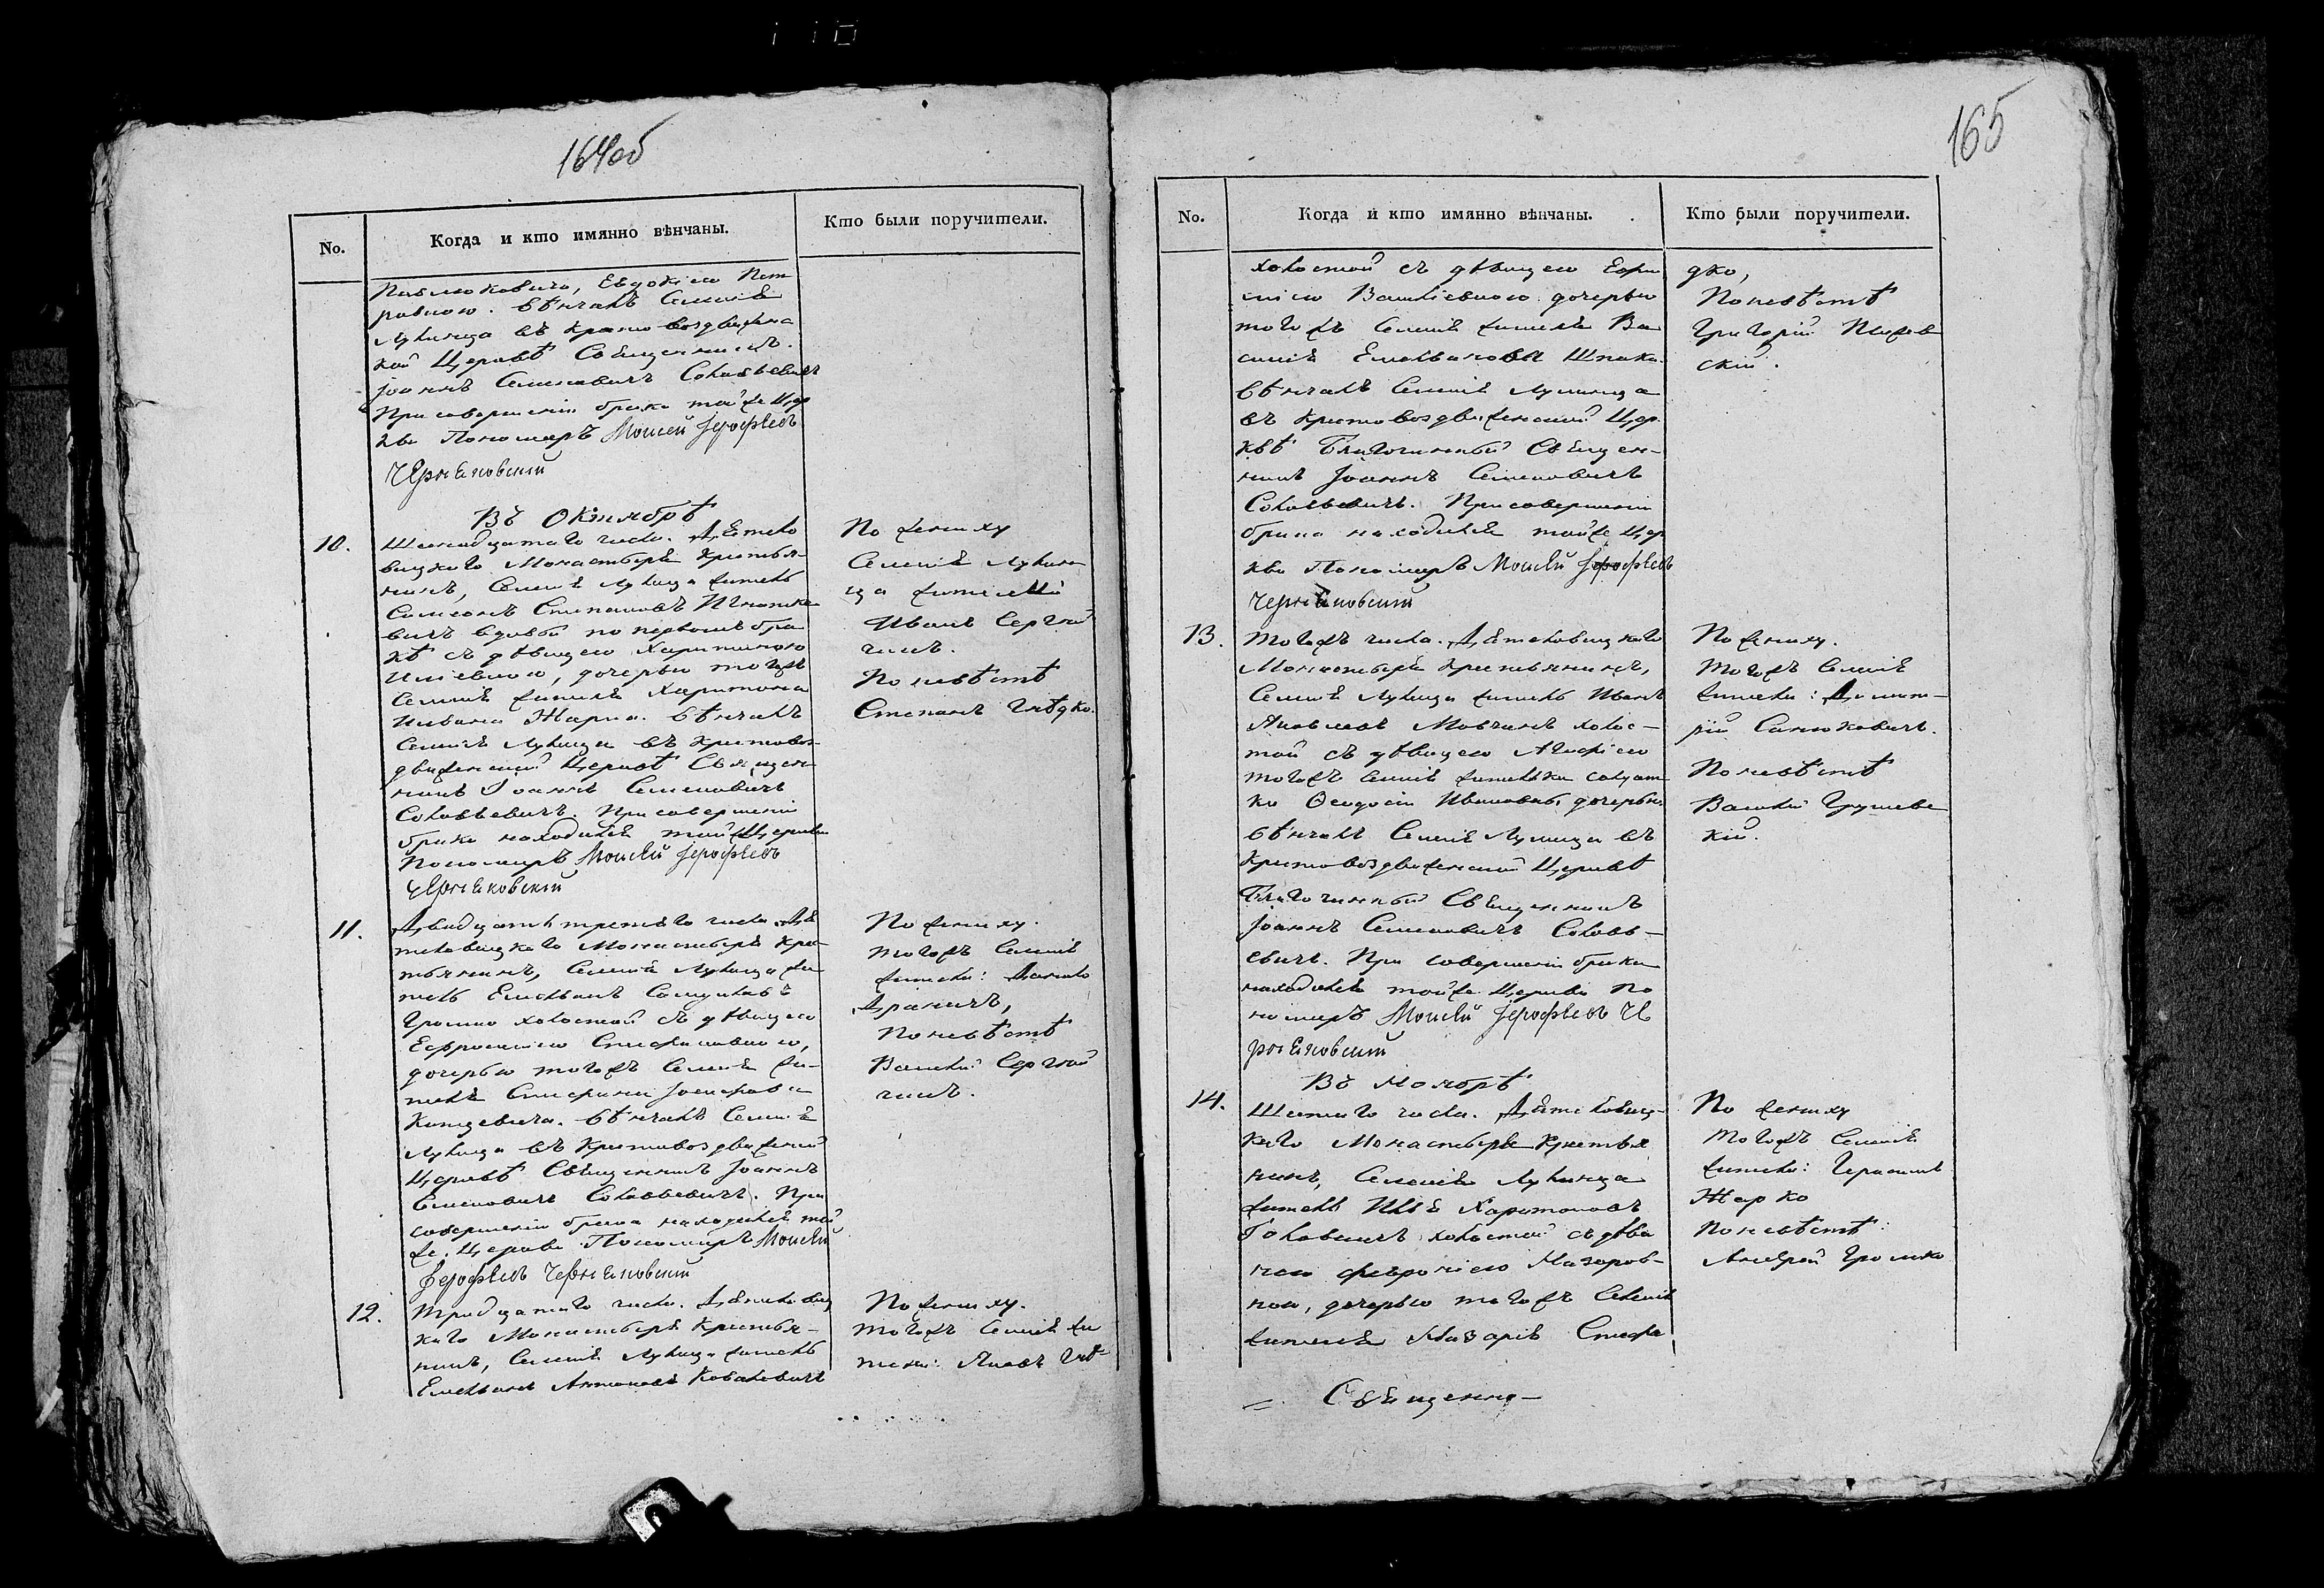 164об
No.
Когда и кто имянно вѣнчаны.
Кто были поручители.
Павлюковича, Евдокіею Пет
ровною. вѣнчалъ Селенія
Лунинца въ Кресто воздвижен
кой Церквѣ Священникъ
Іоаннъ Семеновичъ Соловьевичъ
При совершеніи брака тойже Цер
кви Пономарь Моисей Іерофѣевъ
Черняковскій
Въ Октябрѣ
10.
Шеснадцатаго числа. Дѣтело
вицкого Монастыря Крестья-
нинъ, Селенія Лунинца житель
Самсонъ Степановъ
вичъ вдовый по первомъ бра
кѣ съ дѣвицею Харитиною
Иліевною, дочерью тогожъ
Селенія жителя Харитона
Жарка. вѣнчалъ
Селенія Лунинца въ Крестовоз
движенской Церквѣ Священ
никъ Іоаннъ Семеновичъ
Соловьевичъ. При совершеніи
брака находился тойже Церкви
Пономарь Моисей Іерофѣевъ
Черняковскій
По жениху
Селенія Лунин
ца жители
Иванъ Сергій
чикъ.
По невѣстѣ
Степанъ Гнѣдко.
11.
Двадцать третьяго числа. Дя
теловицкого Монастыря Кре
стьянинъ, Селенія Лунинца жи
тель Емельянъ Самуиловъ
Громко холостой съ дѣвицею
Ефросиніею Стефановною,
дочерью тогожъ Селенія жи-
теля Стефана Іосифова
Концевича. вѣнчалъ Селенія
Лунинца въ Крестовоздвиженской
Церквѣ Священникъ Іоаннъ
Семеновичъ Соловьевичъ. При
совершеніи брака находился той
же Церкви Пономарь Моисей
Іерофѣевъ Черняковскій
По жениху.
тогожъ Селенія
жители: Данило
Драничъ,
По невѣстѣ
Василій Сергій
чикъ.
12.
Тридцатаго числа. Дятеловиц
каго Монастыря Крестья-
нинъ, Селенія Лунинца житель
Емельянъ Антоновъ Ковалевичъ
По жениху.
тогожъ Селенія жи
тели: Яковъ Гнѣ-
165
No.
Когда и кто имянно вѣнчаны.
Кто были поручители.
холостой съ дѣвицею Евфи
міею Василіевною дочерью
тогожъ Селенія жителя Ва
силія Емельянова Шпака.
вѣнчалъ Селенія Лунинца
въ Крестовоздвиженской Цер
квѣ Благочинный Священ-
никъ Іоаннъ Семеновичъ
Соловьевичъ. При совершеніи
брака находился тойже Цер
кви Пономарь Моисей Іерофѣевъ
Черняковскій
дко,
По невѣстѣ
Григорій
скій.
13.
тогожъ числа. Дятеловицкаго
Монастыря Крестьянинъ,
Селенія Лунинца житель Иванъ
Яковлевъ Мовчанъ холос-
той съ дѣвицею Агафіею
тогожъ Селенія жительки солдат
ки Ѳеодосіи Ивановны дочерью.
вѣнчалъ Селенія Лунинца въ
Крестовоздвиженской Церквѣ
Благочинный Священникъ
Іоаннъ Семеновичъ Соловь-
евичъ. При совершеніи брака
находился тойже Церкви По
номарь Моисей Іерофѣевъ Че
рняковскій
По жениху.
тогожъ Селенія
жители: Димит-
рій Санюковичъ.
По невѣстѣ
Василій Грушевс
кій.
Въ Ноябрѣ
14.
Шестаго числа. Дятеловиц-
каго Монастыря Крестья
нинъ, Селенія Лунинца
житель Илія Харитоновъ
Головчичъ холостой съ дѣви
цею Февроніею Назаров-
ною, дочерью тогожъ Селенія
жителя Назарія Стефа
По жениху
тогожъ Селенія
жители: Герасимъ
Жарко
По невѣстѣ:
Андрей Громко
Священно-